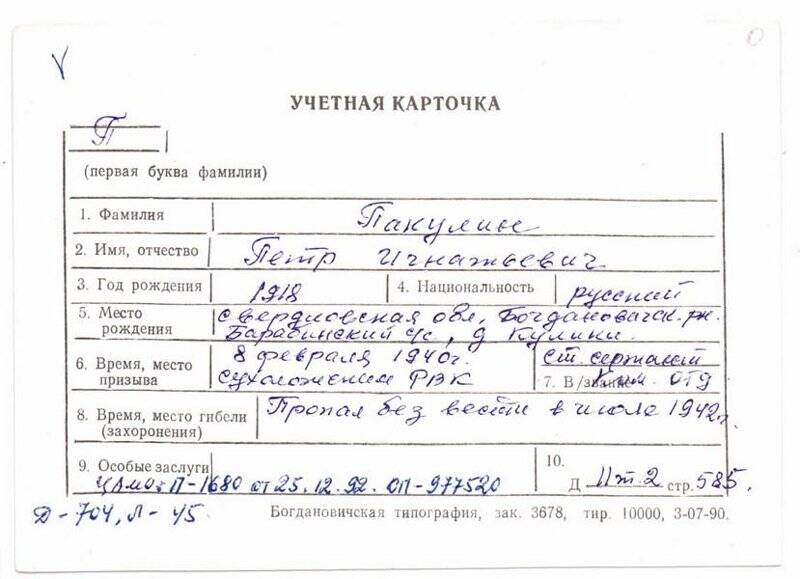 УЧЕТНАЯ КАРТОЧКА
П
(первая буква фамилии)
1. Фамилия Пакулин
2. Имя, отчество Петр Игнатьевич
3. Год рождения 1918 4. Национальность русский
5. Место рождения Свердловская обл, Богдановичск. рн.
Барабинский с/с, д Кулики.
6. Время, место призыва 8 февраля 1940г.
Сухоложским РВК
ст. сержант
7. В/звание отд
8. Время, место гибели (захоронения) Пропал без вести в июле 1942г.
9. Особые заслуги
ЦАМО: П-1680 от 25.12.92. ОП-977520
10.
Д II т. 2 стр. 585.
Д-704, Л-45
Богдановичская типография, зак. 3678, тир. 10000, 3-07-90.